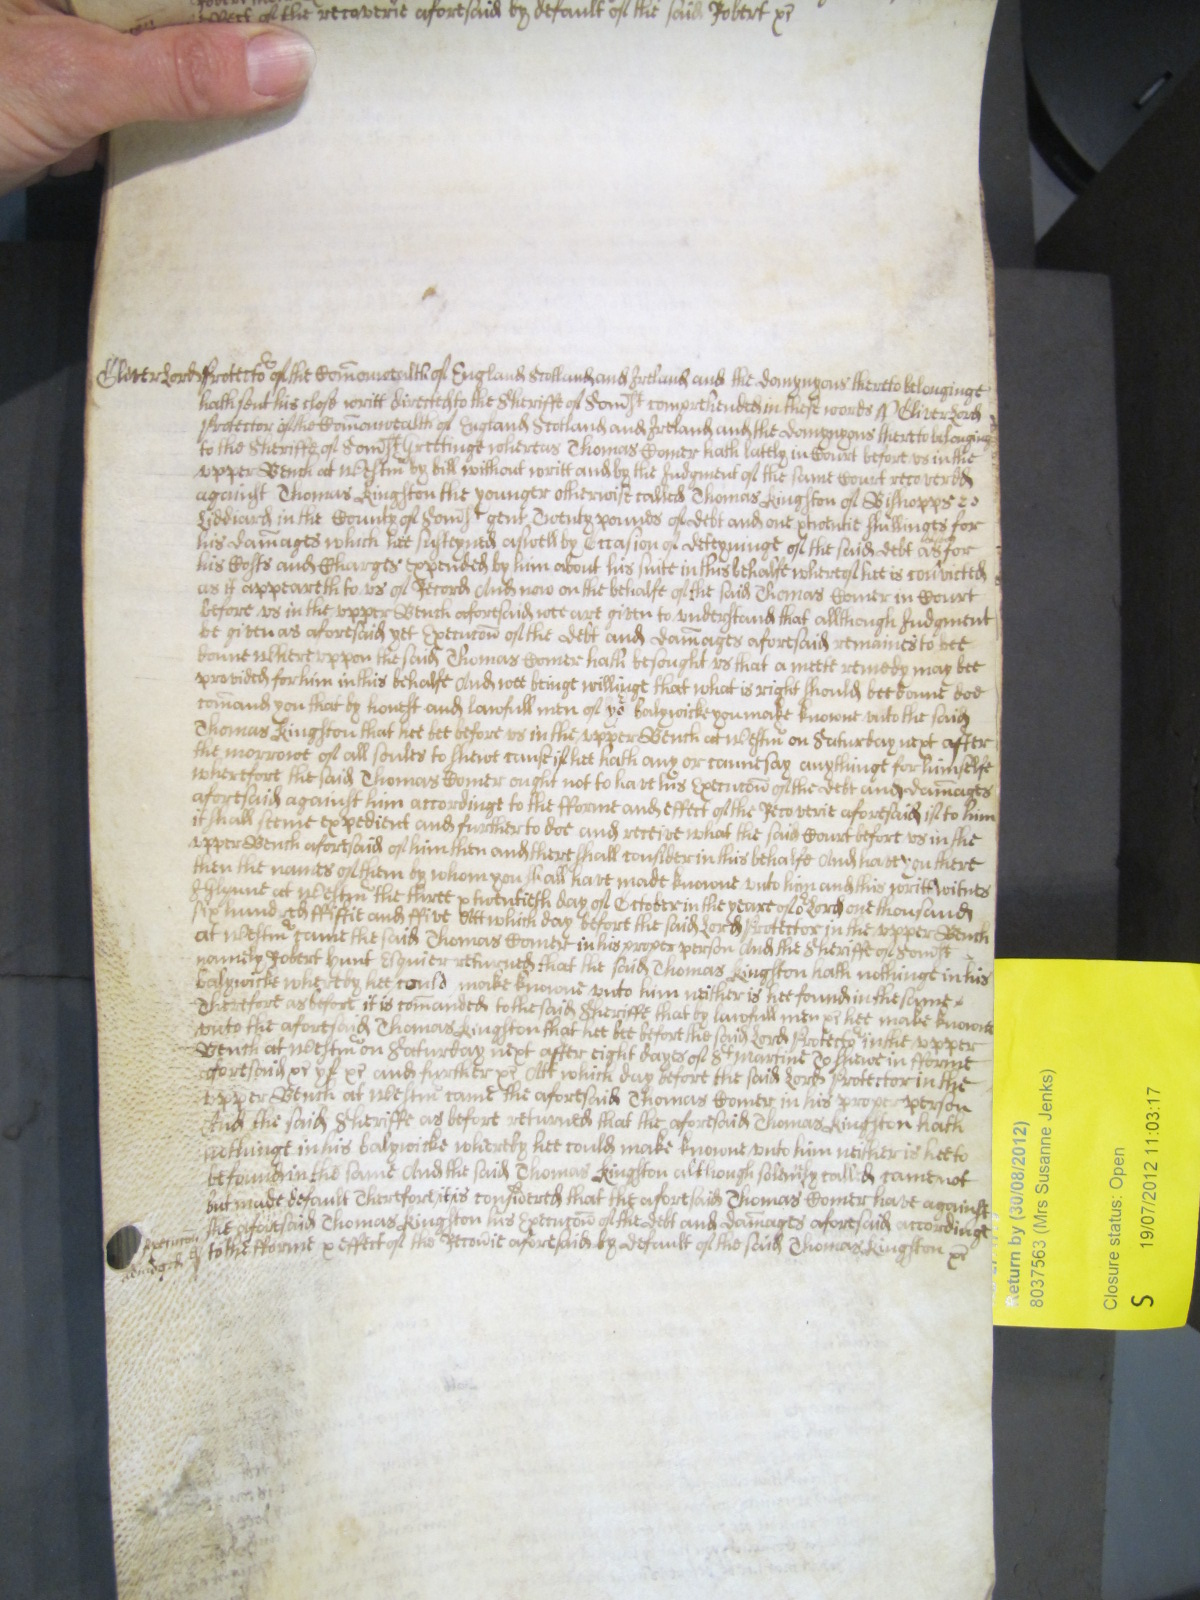 effect of the recoverie aforesaid by default of the said Robert &c
Oliver Lord Protector of the Com̄onwealth of England Scotland and Ireland and the domynyons thereto belonginge
hath sent his close writt directed to the Sheriffe of Som̄st comprehended in these words ss Oliver Lord
Protector of the Com̄onwealth of England Scotland and Ireland and the domynyons thereto belonging
to the Sheriffe of Som̄st Greetinge whereas Thomas Comer hath lately in Court before vs in the
vpper Bench at Westm̄ by bill without writt and by the Judgment of the same Court recovered
against Thomas Kingston the younger otherwise called Thomas Kingston of Bishopps
Liddiard in the County of Som̄st gent Twenty pounds of debt and one & twentie shillinges for
his dam̄ages which hee susteyned aswell by Occasion of deteyninge of the said debt as for
his Costs and Charges expended by him about his suite in this behalfe whereof hee is convicted
as it appeareth to vs of Record And now on the behalfe of the said Thomas Comer in Court
before vs in the vpper Bench aforesaid wee are given to vnderstand that allthough Judgment
be given as aforesaid yet Execucōn of the debt and dam̄ages aforesaid remaines to bee
donne Wherevppon the said Thomas Comer hath besought vs that a meete remedy may bee
provided for him in this behalfe And wee beinge willinge that what is right should bee donne doe
com̄and you that by honest and lawfull men of yor balywicke you make knowne vnto the said
Thomas Kingston that hee bee before vs in the vpper Bench at Westm̄ on Saturday next after
the morrowe of all soules to shewe cause if hee hath any or canne say anythinge for himselfe
wherefore the said Thomas Comer ought not to have his Execucōn of the debt and dam̄ages
aforesaid against him accordinge to the fforme and effect of the Recoverie aforesaid if to him
it shall seeme expedient and further to doe and receive what the said Court before vs in the
vpper Bench aforesaid of him then and there shall consider in this behalfe And have you there
then the names of them by whom you shall have made knowne vnto him and this writt Witnes
J Glynne at Westm̄ the three & twentieth day of October in the yeare of or Lord one thousand
six hundred ffiftie and ffive Att which day before the said Lord Protector in the vpper Bench
at Westm̄ came the said Thomas Comer in his proper person And the Sheriffe of Som̄st
namely Robert Hunt Esquier returned that the said Thomas Kingston hath nothinge in his
balywicke whereby hee could make knowne vnto him neither is hee found in the same
Therefore as before it is com̄anded to the said Sheriffe that by lawfull men &c hee make knowne
vnto the aforesaid Thomas Kingston that hee bee before the said Lord Protector in the vpper
Bench at Westm̄ on Saturday next after eight dayes of St Martine To shewe in fforme
aforesaid &c yf &c and further &c Att which day before the said Lord Protector in the
vpper Bench at Westm̄ came the aforesaid Thomas Comer in his proper person
And the said Sheriffe as before returned that the aforesaid Thomas Kingston hath
nothinge in his balywicke whereby hee could make knowne vnto him neither is hee to
be found in the same And the said Thomas Kingston although solemly called came not
but made default Therefore it is considered that the aforesaid Thomas Comer have against
the aforesaid Thomas Kingston his Execucōn of the debt and dam̄ages aforesaid accordinge
to the fforme & effect of the Recovie aforesaid by default of the said Thomas Kingston &c
Execucōn
Return by (30/08/2012)
8037563 (Mrs Susanne Jenks)
Closure status: Open
S 19/07/2012 11:03:17